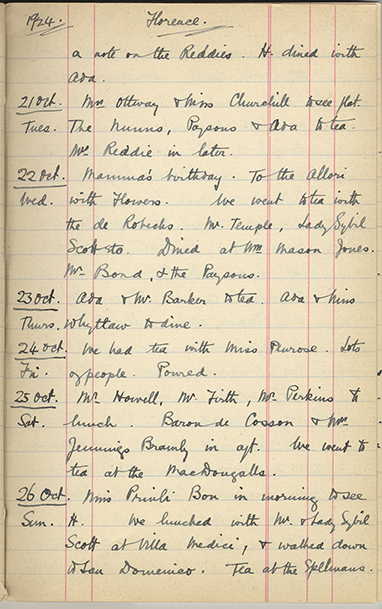 1924. Florence.
a note on the Reddies. H. dined with
Ada.
21 Oct. Mrs Ottway & Miss Churchill to see flat.
Tues. The Nunns, Paysons & Ada to tea.
Mr Reddie in later.
22 Oct. Mamma's birthday. To the Allori
Wed. with flowers. We went to tea with
the de Robecks. Mr. Temple, Lady Sybil
Scott &to. Dined at Wm Mason Jones.
Mr Bond, & the Paysons.
23 Oct. Ada & Mr. Barker to tea. Ada & Miss
Thurs. Whyttlaw to dine.
24 Oct. We had tea with Miss Penrose. Lots
Fri. of people. Poured.
25 Oct. Mr. Howell, Mr. Firth, Mr. Perkins to
Sat. lunch. Baron de Cosson & Mrs
Jennings Bramly in aft. We went to
tea at the MacDougalls.
26 Oct. Miss Bon in morning to see
Sun. H. We lunched with Mr. & Lady Sybil
Scott at Villa Medici, & walked down
to San Domenico. Tea at the Spelmans.